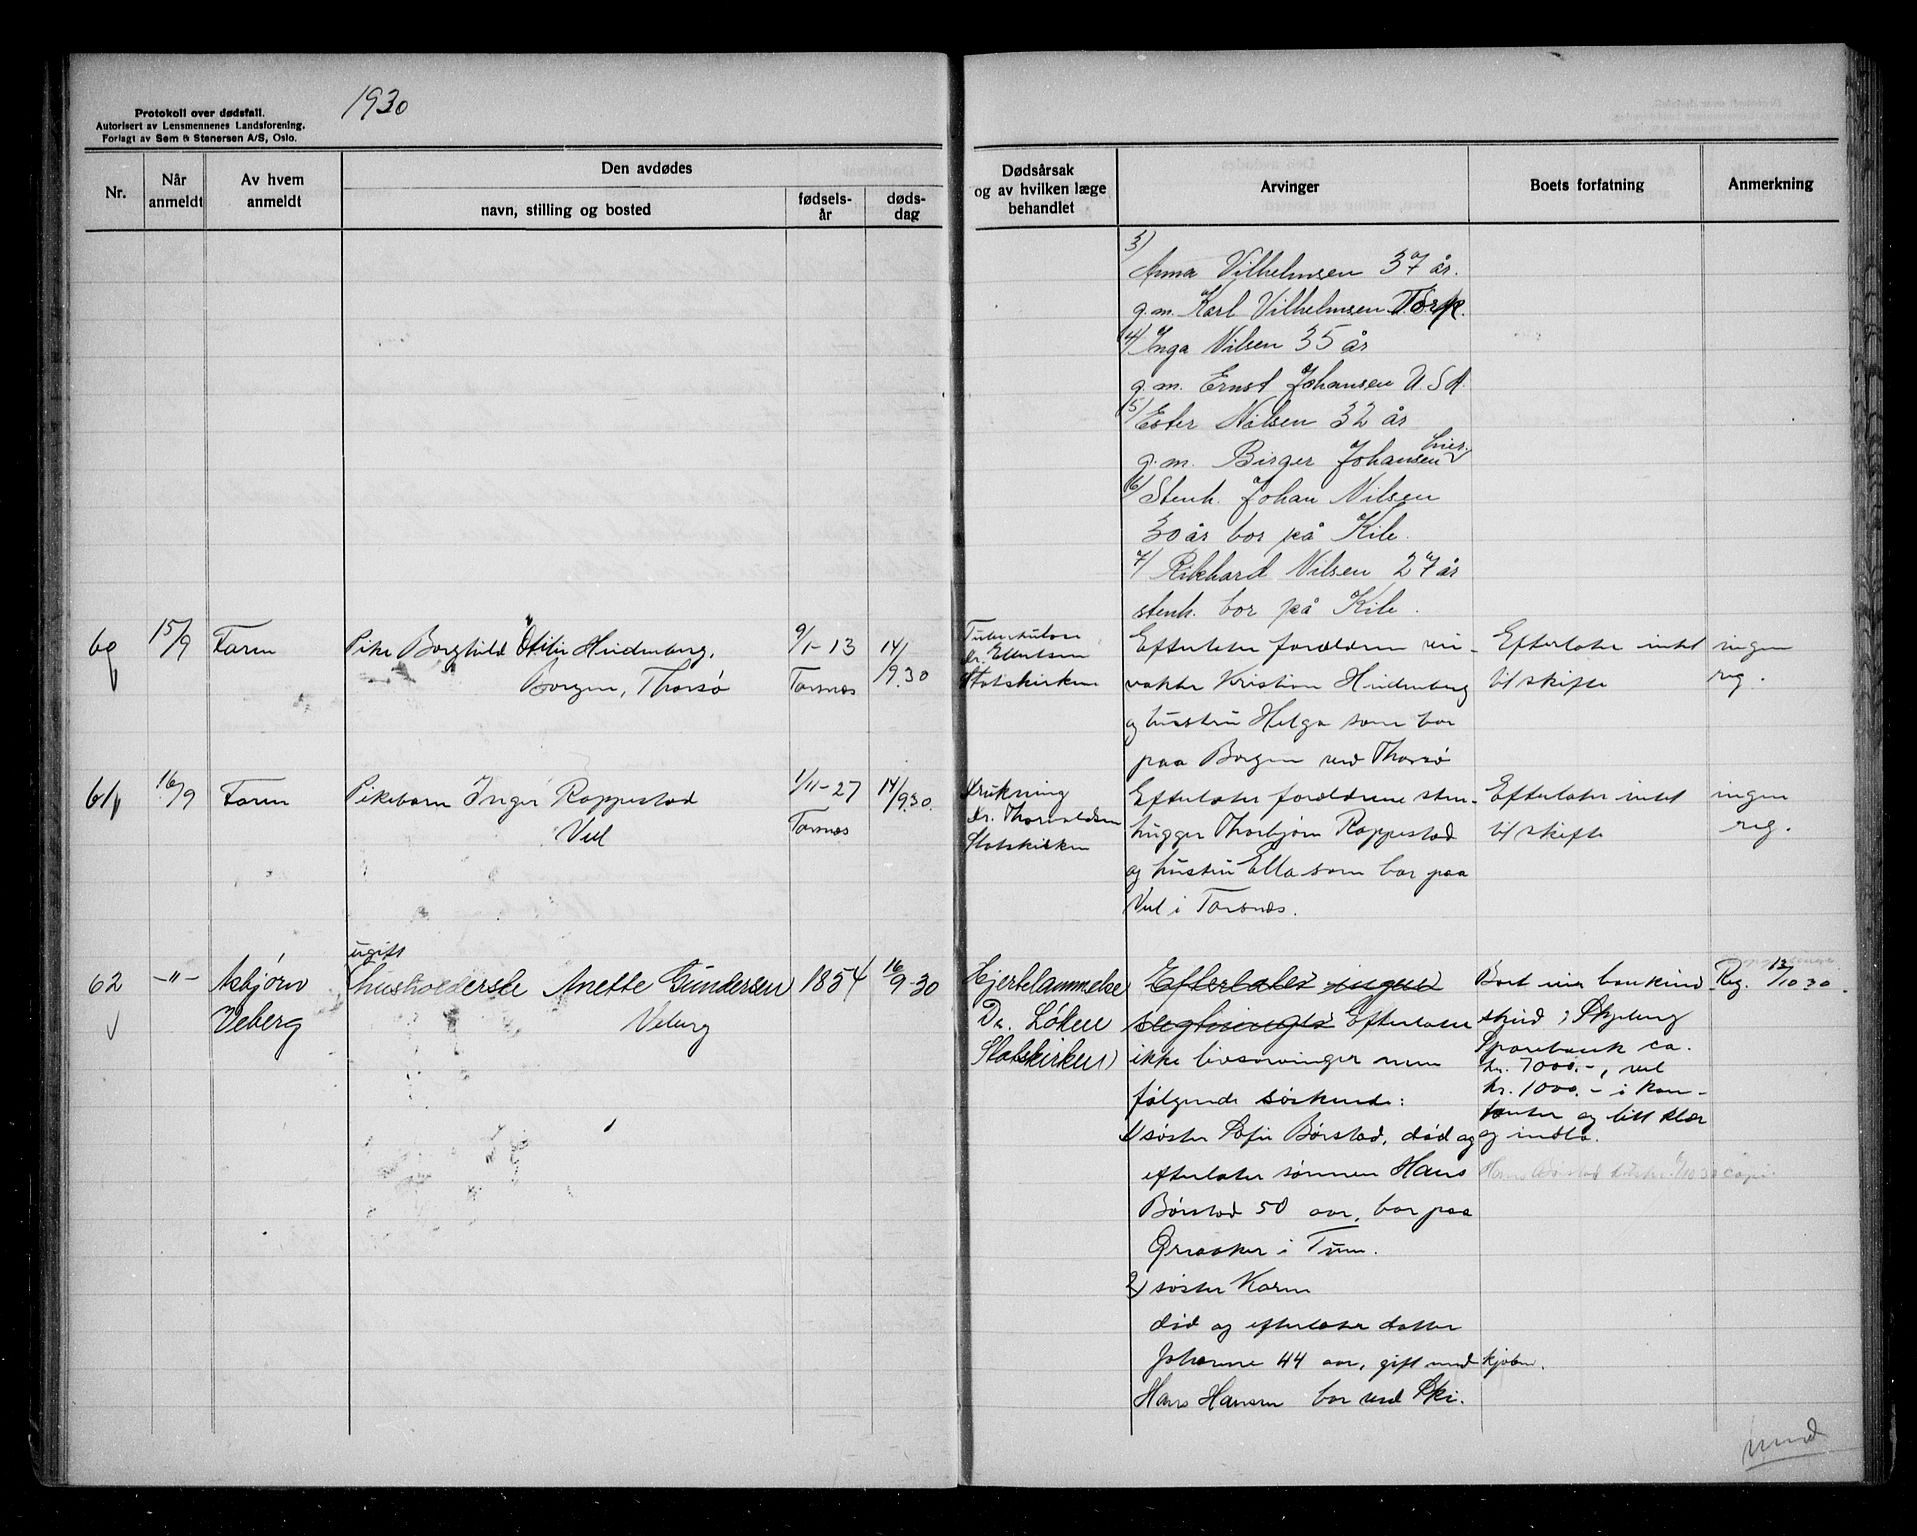 1930
Protokoll over dødsfall.
Autorisert av Lensmennenes Landsforening.
Forlagt av Sem & Stenersen A/S, Oslo.
Nr.
Når anmeldt
Av hvem anmeldt
Den avdødes
navn, stilling og bosted
fødsels-år
døds-dag
Dødsårsak og av hvilken læge behandlet
Arvinger
Boets forfatning
Anmerkning
3)
Anna Vilhelmsen 37 år.
g.m. Karl Vilhelmsen Torp.
4) Inga Nilsen 35 år
g.m. Ernst Johansen U.S.A.
5) Ester Nilsen 32 år
g.m. Birger Johansen
6) Stenh. Johan Nilsen
30 år bor på Kile.
7) Rikhard Nilsen 27 år
stenh. bor på Kile.
60
15/9
Faren
Pike Borghild Otilie Hindenberg,
Borgen, Thorsø
9/1-13
Torsnes
14/9.30
Tuberkulose
dr. Ellertsen
Statskirken
Efterlater forældrene vei-
vokter Kristian Hindenberg
og hustru Helga som bor
paa Borgen ved Thorsø
Efterlater intet
til skifte
ingen
reg.
61
16/9
Faren
Pikebarn Inger Rappestad
Vel
1/11-27
Torsnes
14/9.30.
Drukning
dr. Thorvaldsen
Statskirken
Efterlater forældrene sten-
hugger Thorbjørn Rappestad
og hustru Ella som bor paa
Vel i Torsnes.
Efterlater intet
til skifte
ingen
reg.
62
-"-
Asbjørn
Veberg
ugift
husholderske Anette Gundersen
Veberg
1854
16/9-30
Hjertelammelse
Dr. Løken
Statskirken
Efterlater ingen
slegtninger Efterlater
ikke livsarvinger men
følgende søskende:
1) søster Sofie Børstad, død og
efterlater sønnen Hans
Børstad 50 aar, bor paa
Greaaker i Tune.
2) søster Karen
død og efterlater datter
Johanne 44 aar, gift med kjøbm.
Hans Hansen bor ved Ski.
Boet eier bankind-
skud i Skjeberg
Sparebank ca.
kr. 7000.-, vel
kr. 1000.- i kon-
tanter og litt klær
og indbo.
Hans Børstad 10 30
Reg. 13/10 30.
vend